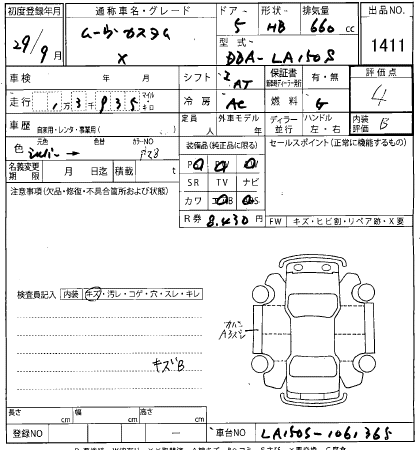 初度登録年月 通称車名・グレード ドア 形状 排気量 出品NO.
29/9月 ムーヴカスタム X 5 HB 660cc 1411
型式 DBA-LA150S
車検 年 月 シフト AT 保証書 有・無 評価点
走行 1万3千935 マイル キロ 冷房 AC 燃料 G 4
車歴 自家用・レンタ・事業用( ) 定員 人 外車モデル 年 ディーラー 並行 ハンドル 左・右 内装評価 B
色 元色 シルバー 色替 カラーNO 装備品(純正品に限る) セールスポイント(正常に機能するもの)
名義変更期限 月 日迄 積載 t
注意事項(欠品・修復・不具合箇所および状態)
SR TV ナビ
カワ
R券 8,430円 FW キズ・ヒビ割・リペア跡・X要
検査員記入 内装 キズ・汚レ・コゲ・穴・スレ・キレ
キズB
長さ cm 幅 cm 高さ cm
登録NO — 車台NO LA150S-1061365